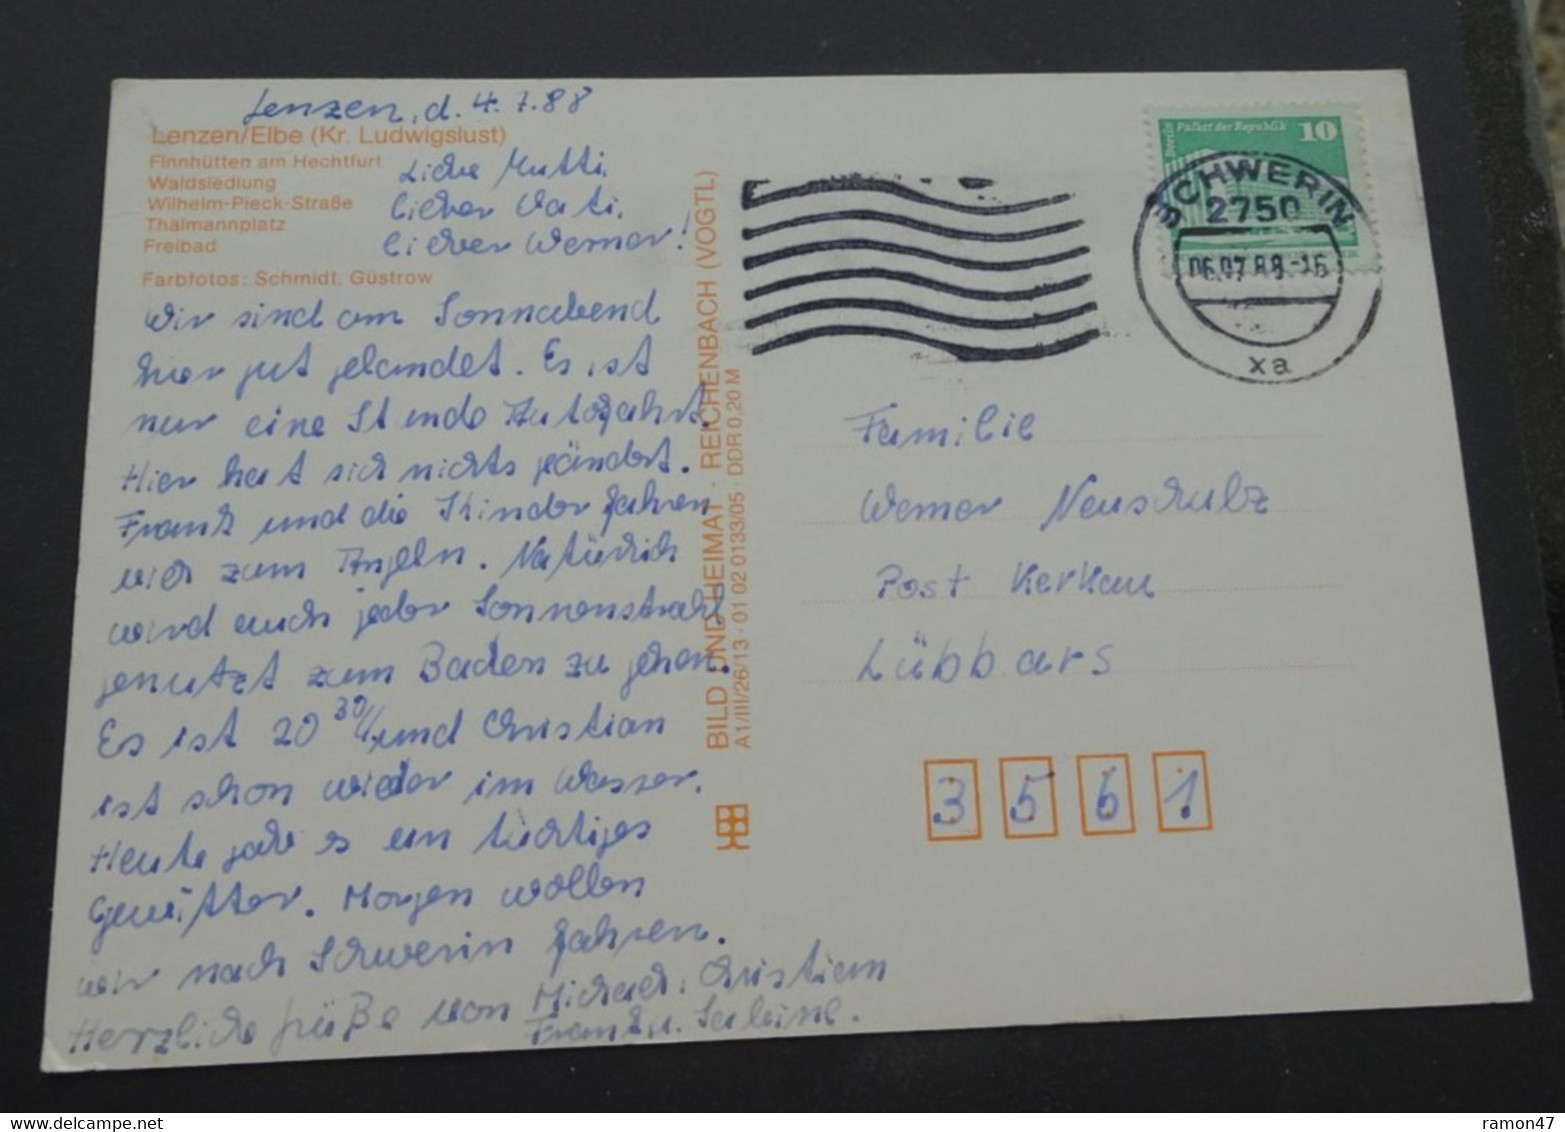 Lenzen, d. 4.7.88
Lenzen/Elbe (Kr. Ludwigslust)
Finnhütten am Hechtfurt
Waldsiedlung
Wilhelm-Pieck-Straße
Thälmannplatz
Freibad
Farbfotos: Schmidt, Güstrow
Liebe Mutti,
lieber Vati,
lieber Werner!
Wir sind am Sonnabend
hier gut gelandet. Es ist
nur eine Stunde Autofahrt.
Hier hat sich nichts geändert.
Frank und die Kinder fahren
viel zum Angeln. Natürlich
wird auch jeder Sonnenstrahl
genutzt zum Baden zu gehen.
Es ist 20 30 und Christian
ist schon wieder im Wasser.
Heute gab es ein tüchtiges
Gewitter. Morgen wollen
wir nach Schwerin fahren.
Herzliche Grüße von Michael, Christian
Frank u. Sabine.
BILD UND HEIMAT · REICHENBACH (VOGTL)
A1/III/26/13 · 01 02 0133/05 · DDR 0,20 M
Palast der Republik 10
Berlin
SCHWERIN
2750
06.07.88-16
xa
Familie
Werner Neuschulz
Post Kerkau
Lübbars
3 5 6 1
ramon47